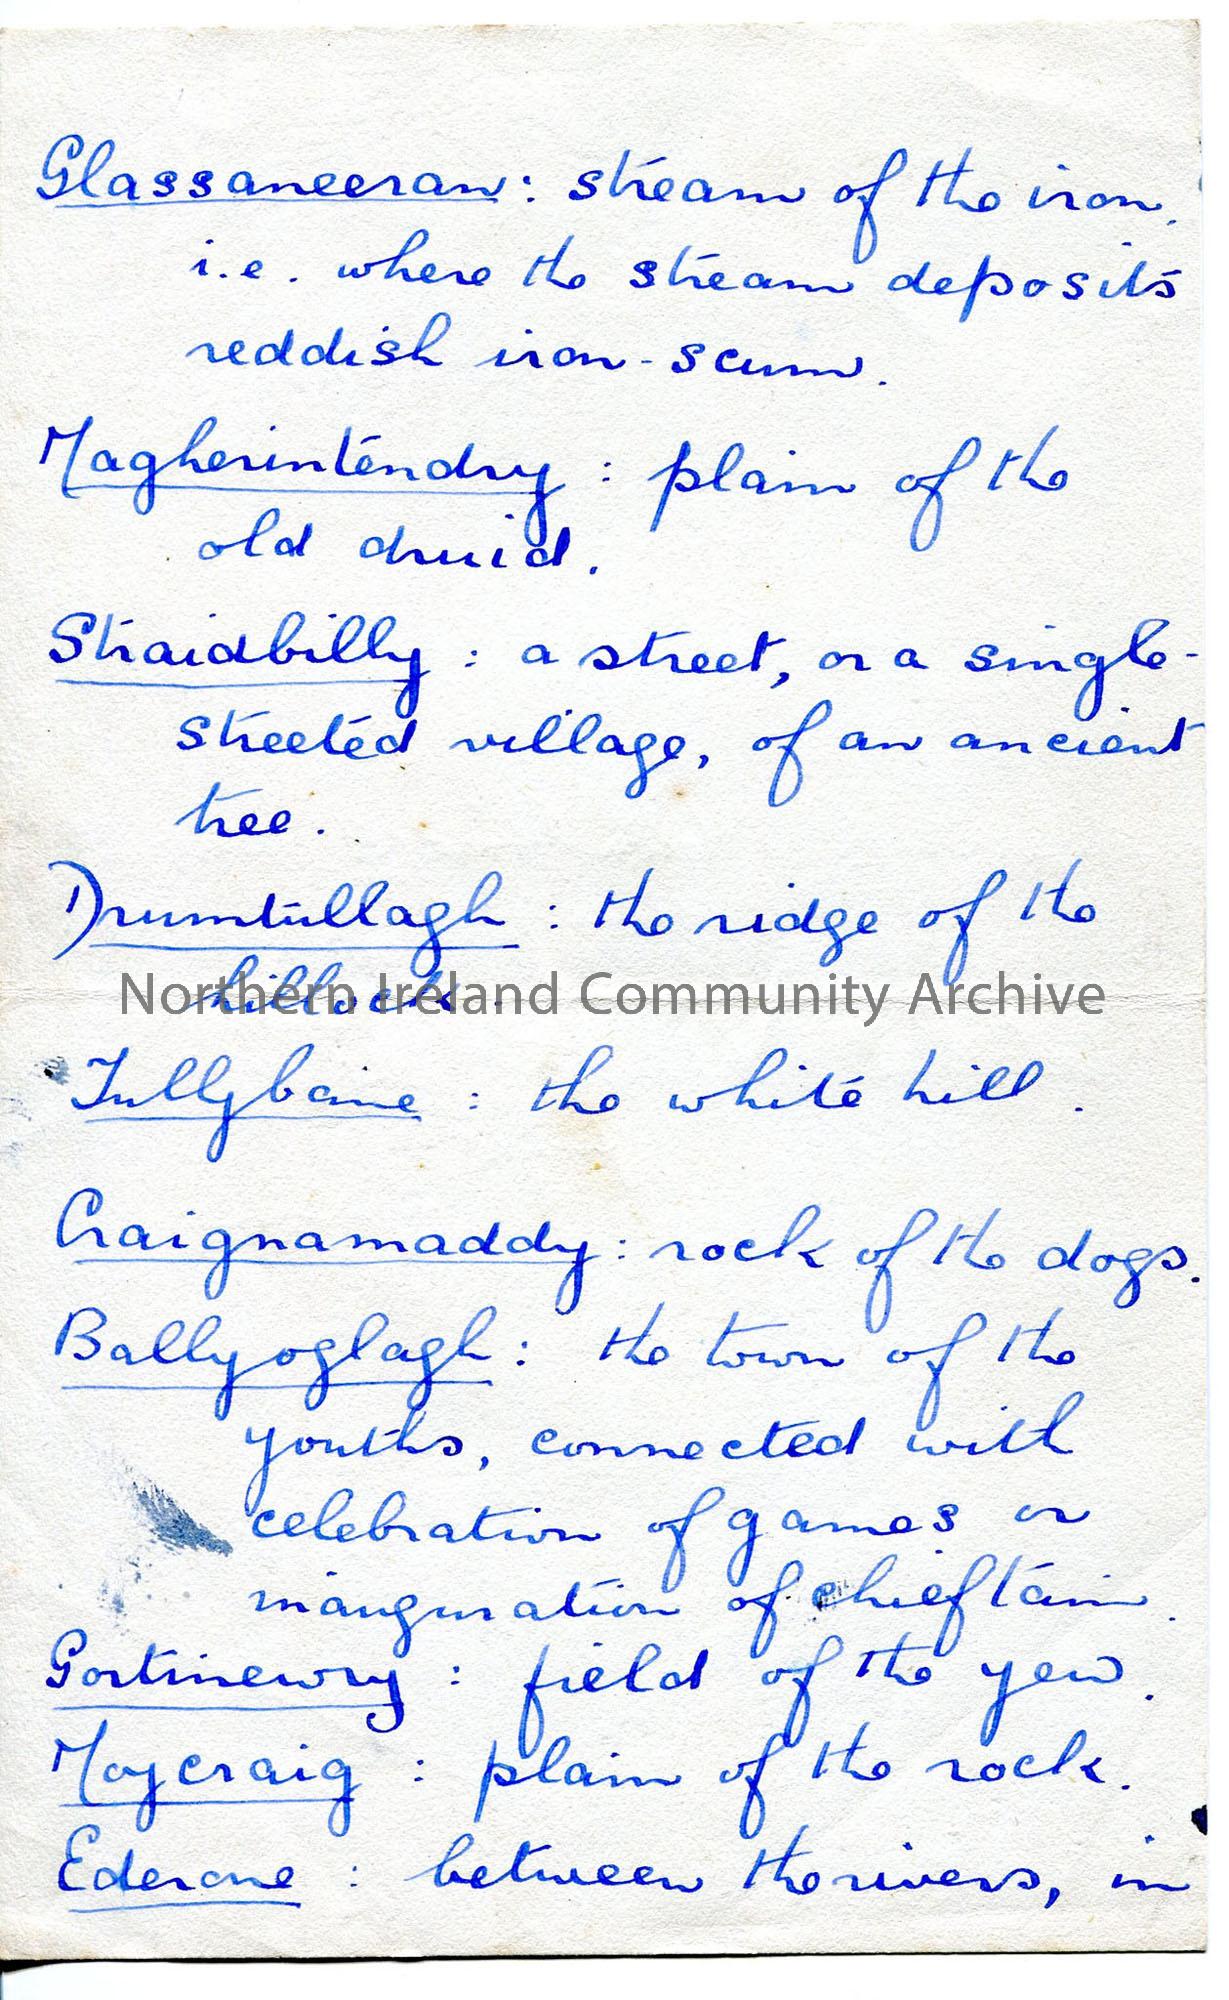 Glassaneeran: stream of the iron.
i.e. where the stream deposits
reddish iron-scum.
Magherintendry: plain of the
old druid.
Straidbilly: a street, or a single-
streeted village, of an ancient
tree.
Drumtullagh: the ridge of the
hillock.
Northern Ireland Community Archive
Tullybane: the white hill.
Craignamaddy: rock of the dogs.
Ballyoglagh: the town of the
youths, connected with
celebration of games or
inauguration of chieftain.
Gortinewry: field of the yew.
Moycraig: plain of the rock.
Ederone: between the rivers, in